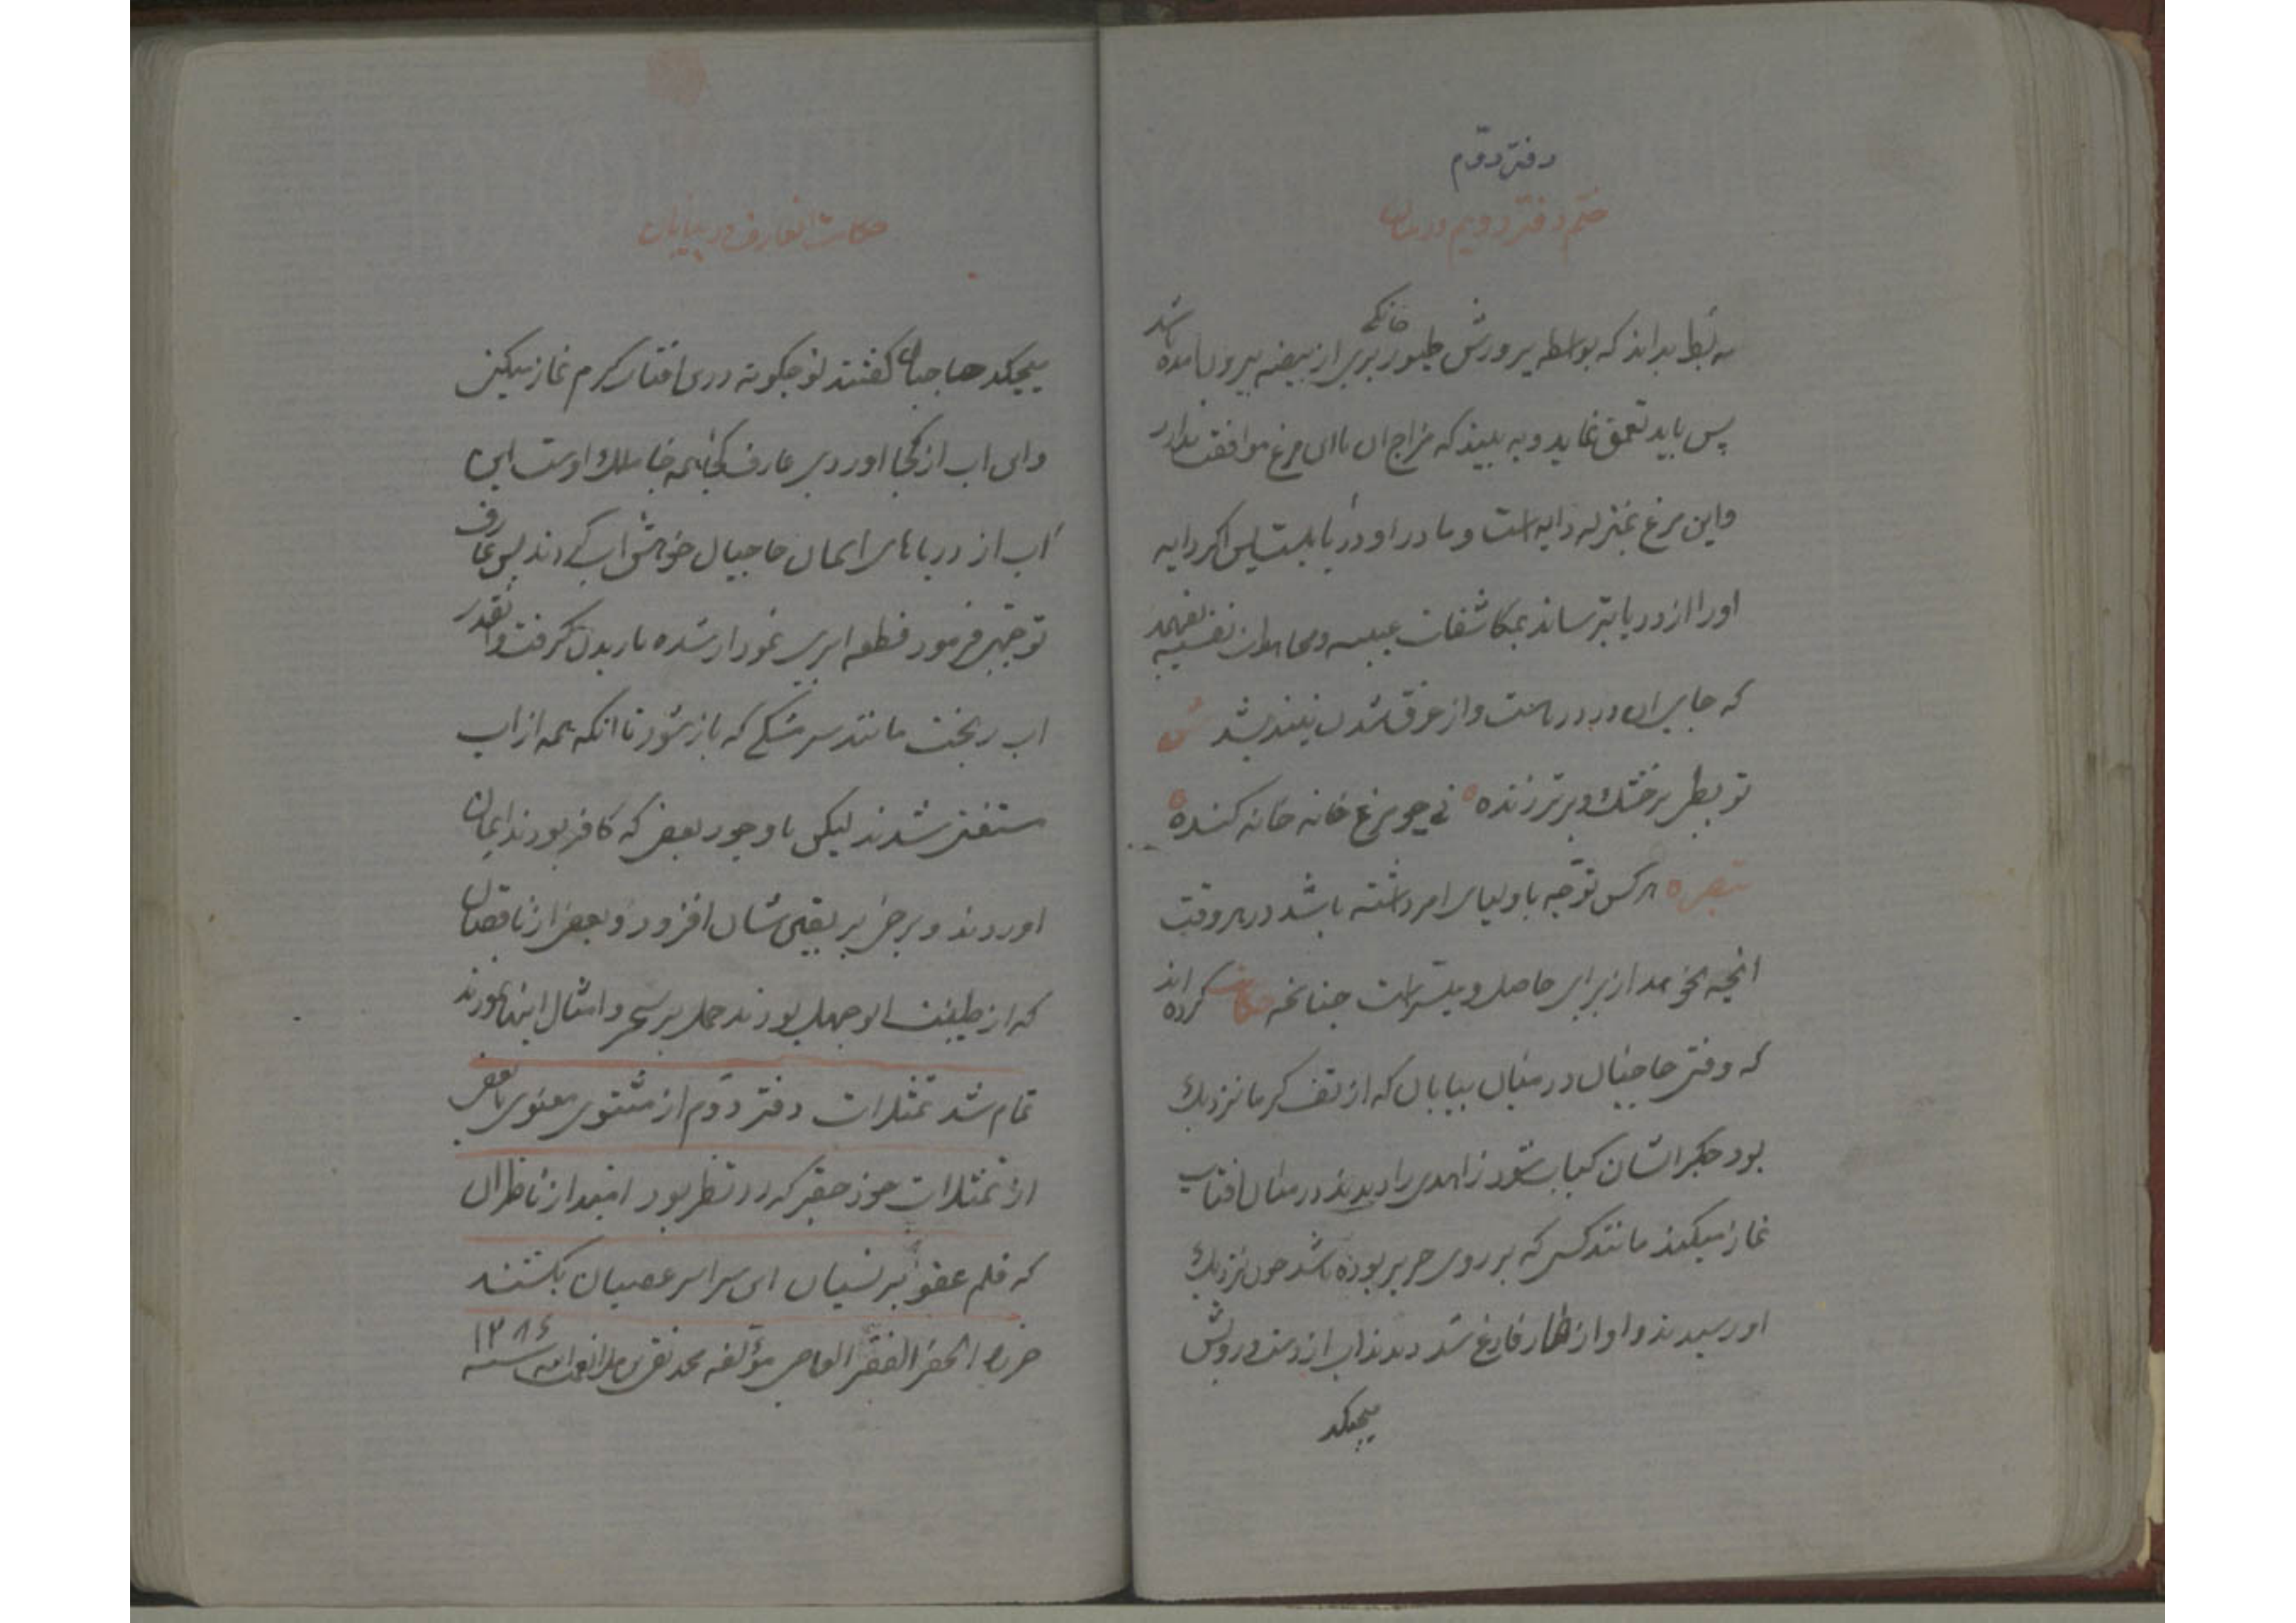 دفتر دوّم
ختم دفتر دویم در بیان
به بط بداند که بواسطه پرورش طیور خانگی بری از بیضه بیرون آمده باشد
پس باید تعمق نماید و به بیند که مزاج ان باای مرغ موافقت ندارد
واین مرغ بمنزله دایه است و مادر او دریا بلیست پس اکر دایه
اورا از دریا بترساند بمکاشفات غیبیه و نفسیه بفهمد
که جایس در دریاست و از غرق شدن نیندیشد
تو بطی بر خشک و بر تر زنده نی چو مرغ خانه خانه کنده
تبصره هرکس توجّه باولیای امر داشته باشد در هر وقت
انچه بخواهد از برای حاصل و میسر است چنانچه حکایت کرده اند
که وقتی حاجیان در میان بیابان که از تف کرما نزدیک
بود جکر ایشان کباب شود زاهدی را دیدند در میان افتاب
نماز میکند مانند کسی که بر روی حریر بوده باشد چون نزدیک
او رسیدند و او از نماز فارغ شد دیدند اب از دست و رویش
میچکد
حکایت عارف در بیابان
میچکد حاجیان کفتند تو چکونه در افتاب کرم نماز میکنی
وای اب از کجا اوردی عارف کجا همه جا ملک اوست این
آب از دریاهای ایمان حاجیان خواهش اب کردند پس عارف
توجّهی فرمود قطعه ابری نمودار شده باریدن کرفت و انقدر
اب ریخت مانند سر مشکی که باز شود تا انکه همه از اب
مستغنی شدند لیکن باوجود بعضی که کافر بودند ایمان
اوردند و برخی بر یقین شان افزود و بعضی از ناقصان
که از طینت ابوجهل بودند حمل بر سحر و امثال اینها نمودند
تمام شد تمثیلات دفتر دوّم از مثنوی معنوی با بعضی
از تمثیلات خود حقیر که در نظر بود امید از ناظران
که قلم عفو بر نسیان ای سراسر عصیان بکشند
حرره الحقیر الفقیر العاصی مؤلفه محمد تقی سنه ۱۲۸۶